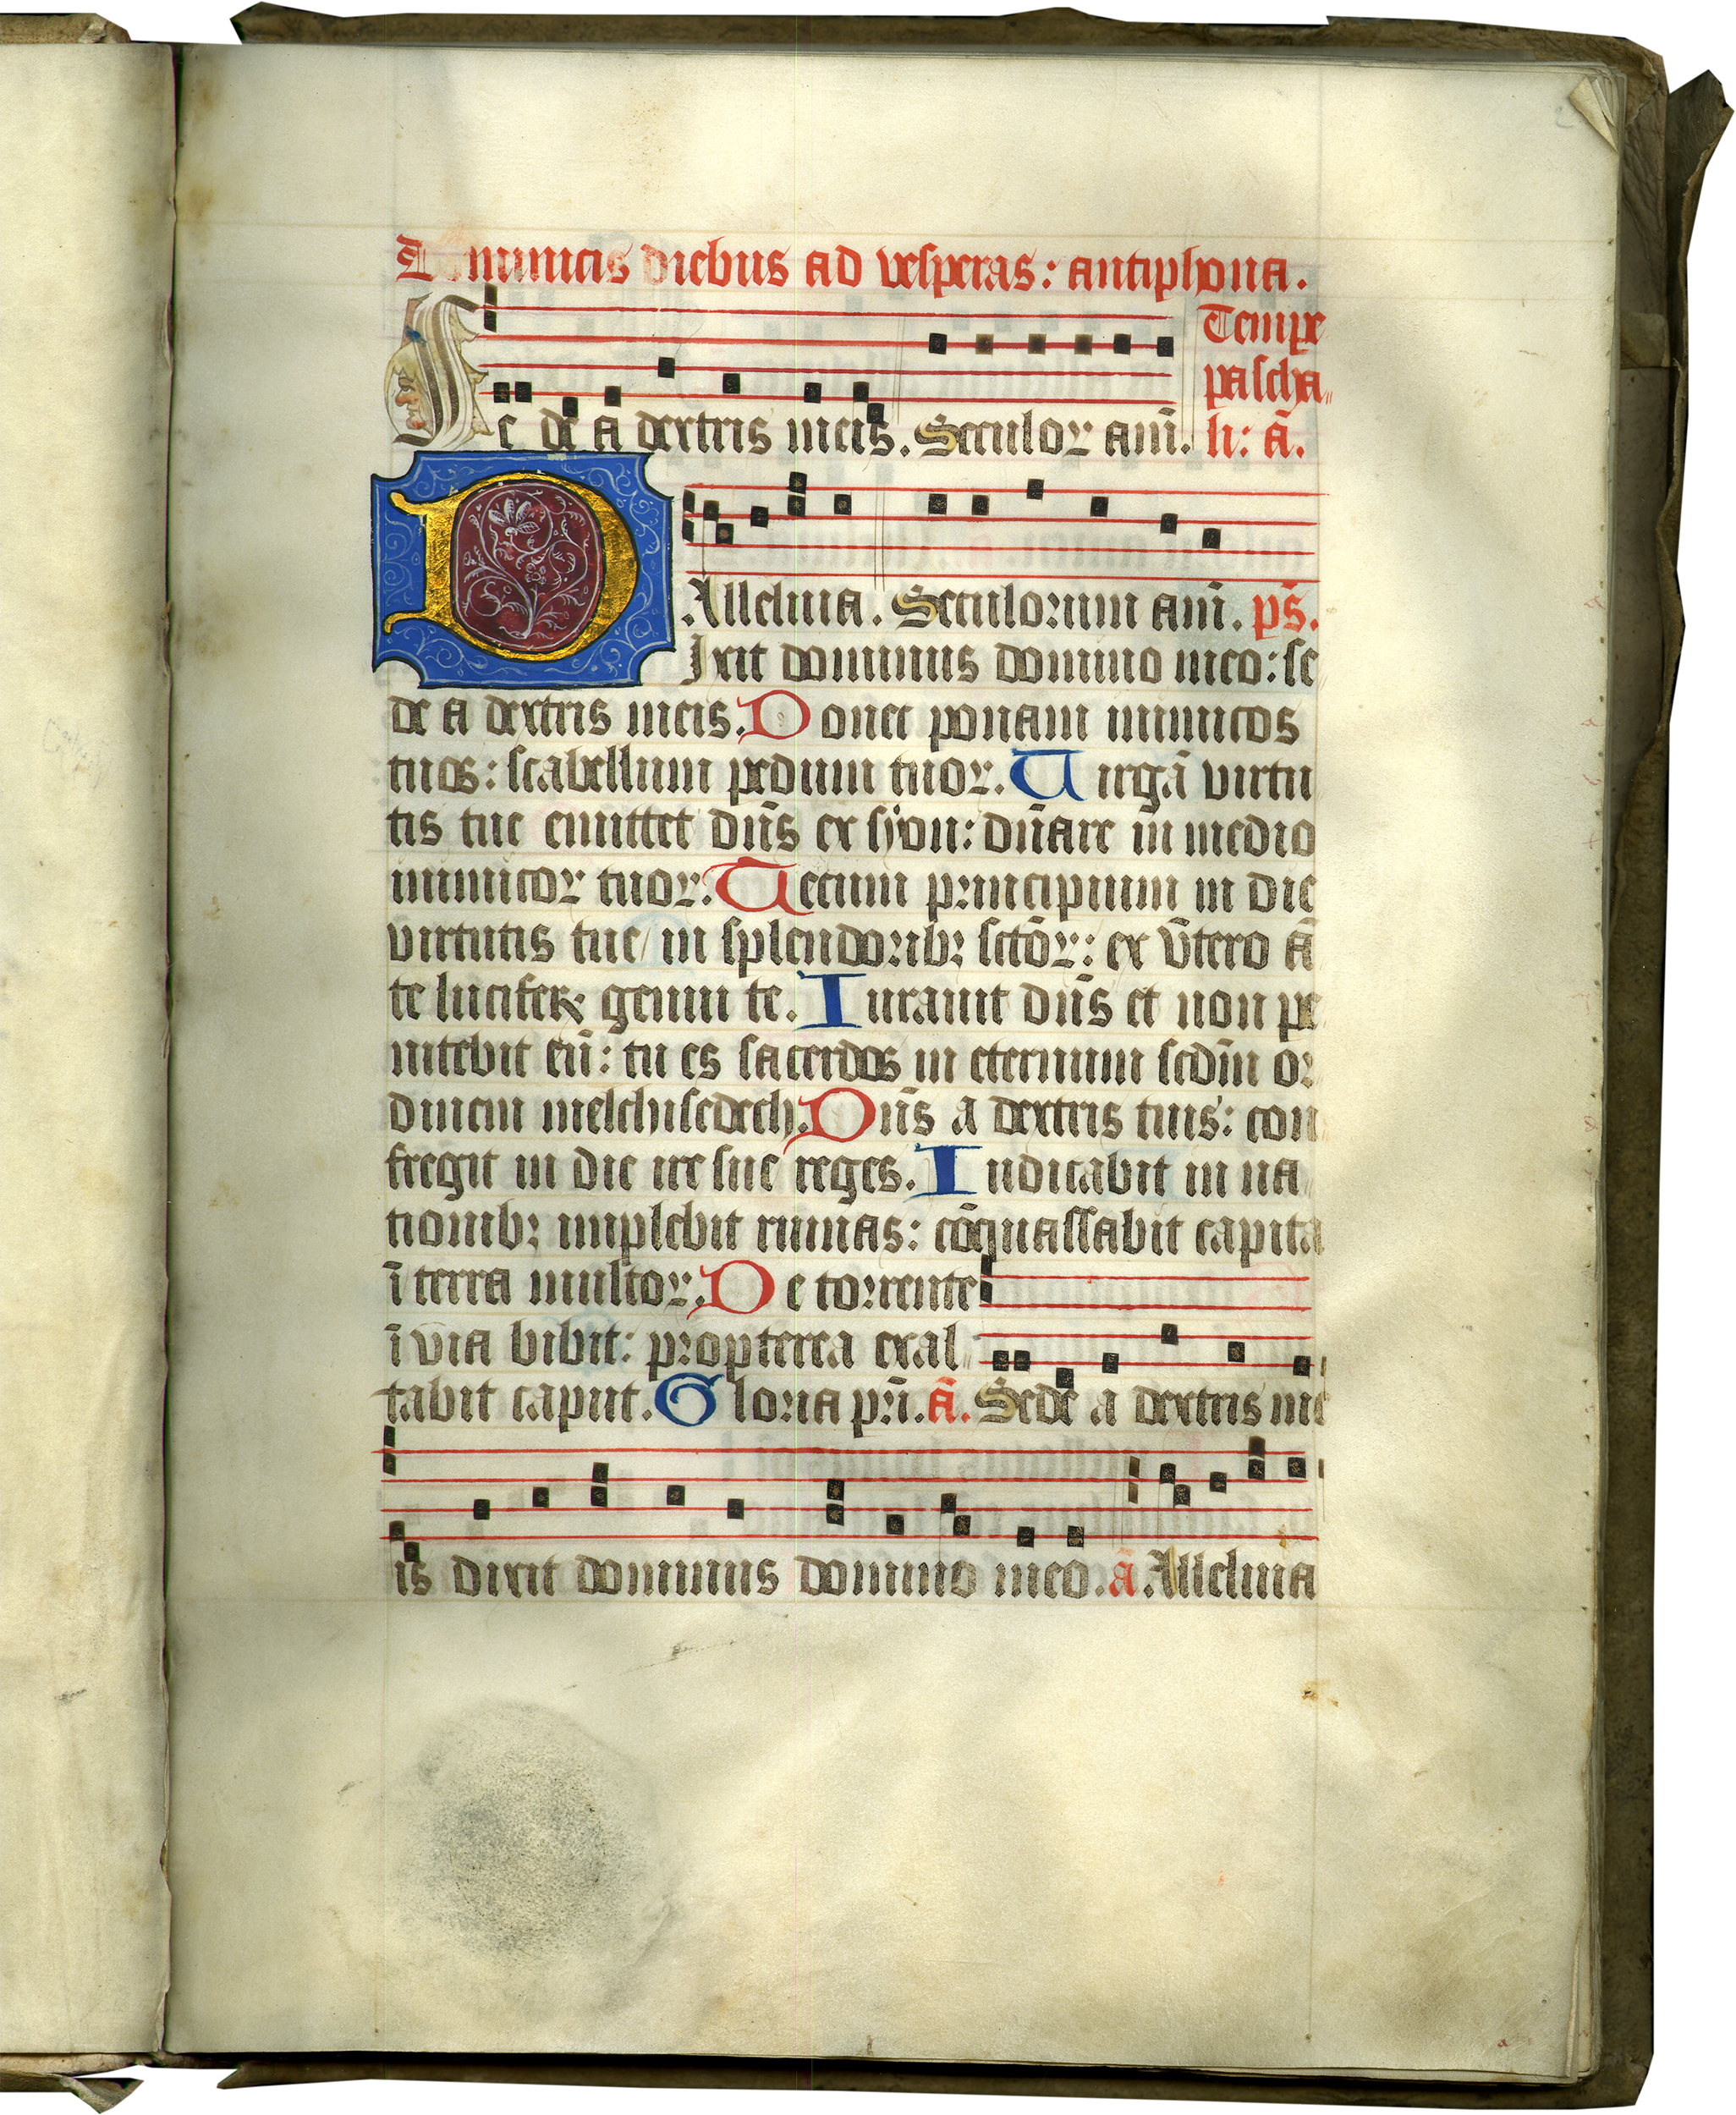 Dominicis diebus ad vesperas: antiphona.
Tempe
pascha
li: ā.
Se de a dextris meis. Seculoꝝ am̄.
Alleluia. Seculorum am̄. ps̄.
Dixit dominus domino meo: se
de a dextris meis. Donec ponam inimicos
tuos: scabellum pedum tuoꝝ. Uirgā virtu
tis tue emittet dn̄s ex syon: dn̄are in medio
inimicoꝝ tuoꝝ. Tecum principium in die
virtutis tue in splendorib; sctōꝝ: ex vtero ā
te luciferū genui te. Iurauit dn̄s et non pe
nitebit eū: tu es sacerdos in eternum scdm̄ or
dinem melchisedech. Dn̄s a dextris tuis: con
fregit in die ire sue reges. Iudicabit in na
tionib; implebit ruinas: cōquassabit capita
ī terra multoꝝ. De torrente
ī via bibit: propterea exal
tabit caput. Gloria pr̄i. ā. Sede a dextris me
is dixit dominus domino meo. ā. Alleluia